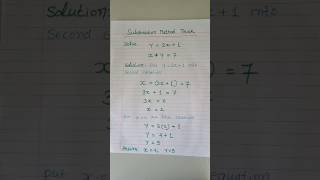 Substitution Method Trick
Solve: y = 2x + 1
x + y = 7
Solution: Put y = 2x + 1 into
second equation
x + (2x + 1) = 7
3x + 1 = 7
3x = 6
x = 2
y = 2(2) + 1
y = 4 + 1
y = 5
x = 2, y = 5